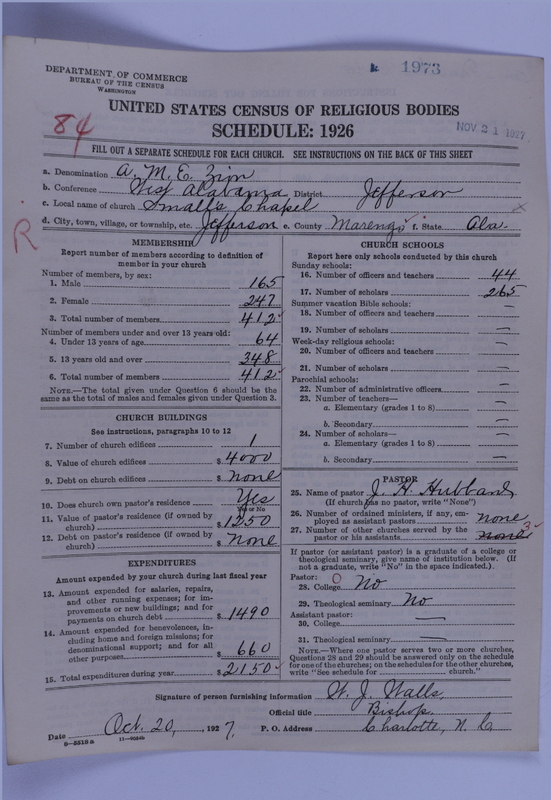 1973
DEPARTMENT OF COMMERCE
BUREAU OF THE CENSUS
WASHINGTON
UNITED STATES CENSUS OF RELIGIOUS BODIES
SCHEDULE: 1926
84
NOV 21 1927
FILL OUT A SEPARATE SCHEDULE FOR EACH CHURCH. SEE INSTRUCTIONS ON THE BACK OF THIS SHEET
a. Denomination A. M. E. Zion
b. Conference West Alabama District Jefferson
c. Local name of church Small's Chapel
d. City, town, village, or township, etc. Jefferson e. County Marengo f. State Ala.
R
MEMBERSHIP
Report number of members according to definition of
member in your church
Number of members, by sex:
1. Male 165
2. Female 247
3. Total number of members 412
Number of members under and over 13 years old:
4. Under 13 years of age 64
5. 13 years old and over 348
6. Total number of members 412
NOTE.—The total given under Question 6 should be
same as the total of males and females given under Question 3.
CHURCH BUILDINGS
See instructions, paragraphs 10 to 12
7. Number of church edifices 1
8. Value of church edifices $ 4000
9. Debt on church edifices $ none
10. Does church own pastor's residence Yes
Yes or No
11. Value of pastor's residence (if owned by
church) $ 1250
12. Debt on pastor's residence (if owned by
church) $ none
EXPENDITURES
Amount expended by your church during last fiscal year
13. Amount expended for salaries, repairs,
and other running expenses; for im-
provements or new buildings; and for
payments on church debt $ 1490
14. Amount expended for benevolences, in-
cluding home and foreign missions; for
denominational support; and for all
other purposes $ 660
15. Total expenditures during year $ 2150
CHURCH SCHOOLS
Report here only schools conducted by this church
Sunday schools:
16. Number of officers and teachers 44
17. Number of scholars 265
Summer vacation Bible schools:
18. Number of officers and teachers —
19. Number of scholars —
Week-day religious schools:
20. Number of officers and teachers —
21. Number of scholars —
Parochial schools:
22. Number of administrative officers —
23. Number of teachers—
a. Elementary (grades 1 to 8) —
b. Secondary —
24. Number of scholars—
a. Elementary (grades 1 to 8) —
b. Secondary —
PASTOR
25. Name of pastor J. H. Hubbard
(If church has no pastor, write "None")
26. Number of ordained ministers, if any, em-
ployed as assistant pastors none
27. Number of other churches served by the
pastor or his assistants none 3
If pastor (or assistant pastor) is a graduate of a college or
theological seminary, give name of institution below. (If
not a graduate, write "No" in the space indicated.)
Pastor:
28. College No
29. Theological seminary No
Assistant pastor:
30. College —
31. Theological seminary —
NOTE.—Where one pastor serves two or more churches,
Questions 28 and 29 should be answered only on the schedule
for one of the churches; on the schedules for the other churches,
write "See schedule for church."
Signature of person furnishing information W. J. Walls,
Official title Bishop
Date Oct. 20, 1927. P. O. Address Charlotte, N. C.